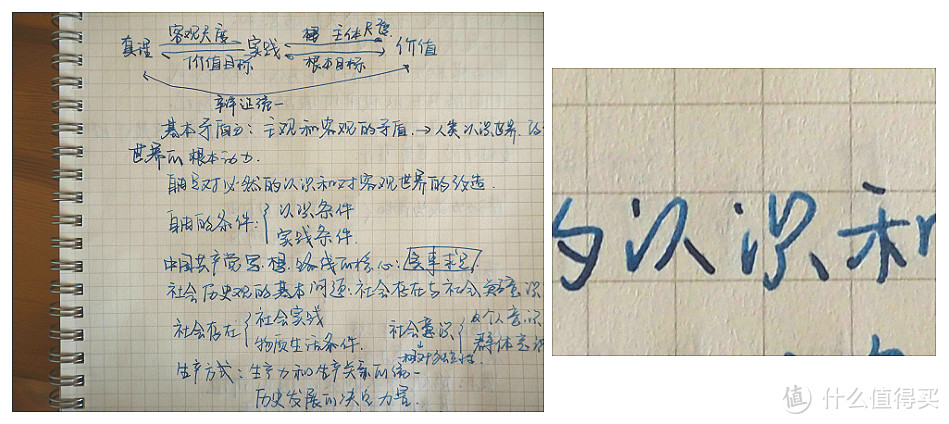 真理 客观尺度 实践 主体尺度 价值
价值目标 根本目标
辩证统一
基本矛盾:主观和客观的矛盾.→人类认识世界.改
世界的根本动力.
自由是对必然的认识和对客观世界的改造.
自由的条件:{认识条件
实践条件.
中国共产党思想路线的核心:实事求是.
社会历史观的基本问题:社会存在与社会意识
社会存在{社会实践
物质生活条件.
社会意识{个人意识
群体意识
相对独立性.
生产方式:生产力和生产关系的统一
历史发展的决定力量.
的认识和
值 什么值得买